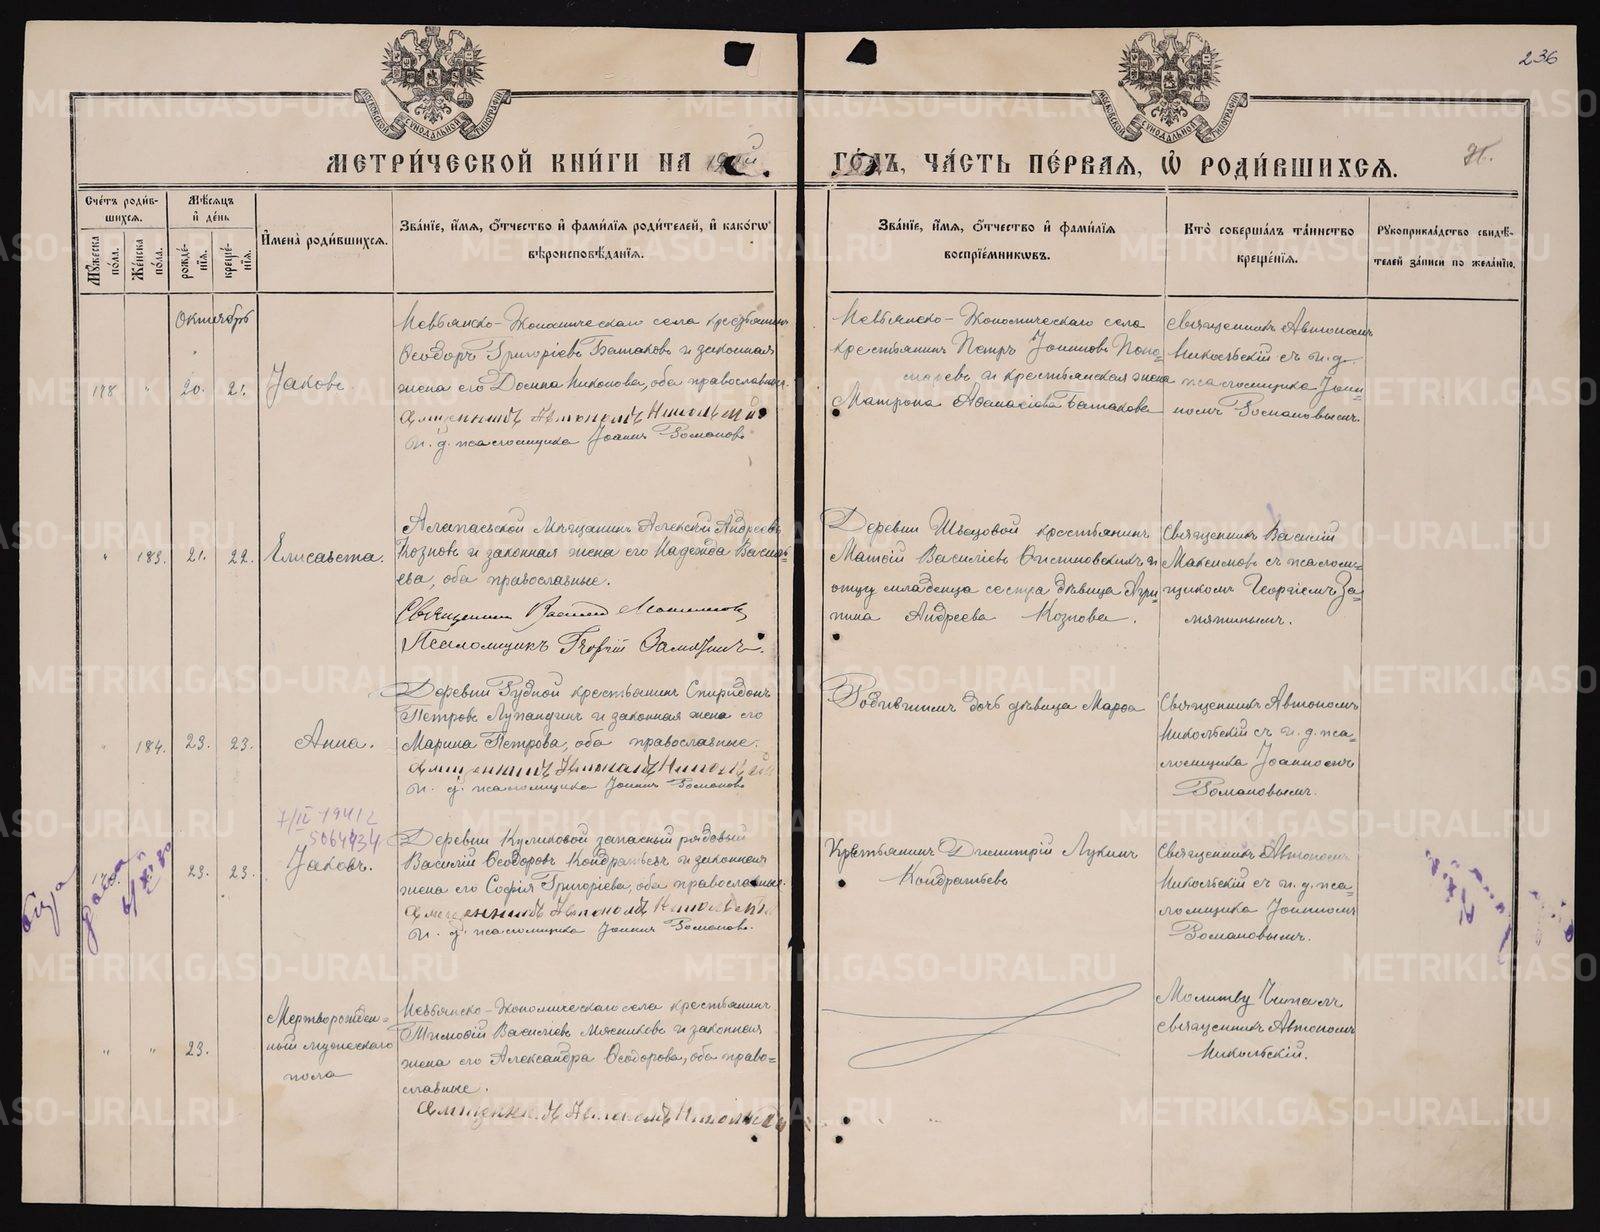 236
МОСКОВСКОЙ СѴНОДАЛЬНОЙ ТИПОГРАФІИ
МОСКОВСКОЙ СѴНОДАЛЬНОЙ ТИПОГРАФІИ
МЕТРИ́ЧЕСКОЙ КНИ́ГИ НА
ГО́ДЪ, ЧА́СТЬ ПЕ́РВАЯ, Ѽ РОДИ́ВШИХСѦ.
Сче́тъ роди́в-
шихсѧ.
Мѣ́сѧцъ
и҆ де́нь
Му́жеска по́ла.
Же́нска по́ла.
рожде́-
нїѧ.
креще́-
нїѧ.
И҆мена̀ роди́вшихсѧ.
Зва́нїе, и҆́мѧ, ѻ҆́тчество и҆ фами́лїѧ роди́телей, и҆ како́гѡ
вѣроисповѣ́данїѧ.
Зва́нїе, и҆́мѧ, ѻ҆́тчество и҆ фами́лїѧ
воспрїе́мникѡвъ.
Кто̀ соверша́лъ та́инство
креще́нїѧ.
Рꙋкоприкла́дство свидѣ́-
телей за́писи по жела́нїю.
Октябрь
178 " 20. 21. Іаковъ.
Невьянско-Экономическаго села крестьянинъ
Ѳеодоръ Григоріевъ Батаковъ и законная
жена его Домна Никонова, оба православные.
Священникъ Автономъ Никольскій
И. д. псаломщика Іоаннъ Романовъ
Невьянско-Экономическаго села
крестьянинъ Петръ Іоанновъ Поно-
маревъ и крестьянская жена
Матрона Аѳанасіева Батакова
Священникъ Автономъ
Никольскій съ и. д.
псаломщика Іоан-
номъ Романовымъ.
" 183. 21. 22. Елисавета.
Алапаевской мѣщанинъ Алексѣй Андреевъ
Козловъ и законная жена его Надежда Василь-
ева, оба православные.
Священникъ Василій Максимовъ
Псаломщикъ Георгій Замятинъ.
Деревни Швецовой крестьянинъ
Матѳій Василіевъ и
отцу младенца сестра дѣвица Агри-
пина Андреева Козлова.
Священникъ Василій
Максимовъ съ псалом-
щикомъ Георгіемъ За-
мятинымъ.
" 184. 23. 23. Анна.
Деревни Рудной крестьянинъ Спиридонъ
Петровъ Лупандинъ и законная жена его
Марина Петрова, оба православные.
Священникъ Автономъ Никольскій
И. д. псаломщика Іоаннъ Романовъ
Родившимъ дочь дѣвица Марѳа
Священникъ Автономъ
Никольскій съ и. д. пса-
ломщика Іоанномъ
Романовымъ.
23. 23. Іаковъ.
Деревни Куликовой запасный рядовый
Василій Ѳеодоровъ Кондратьевъ и законная
жена его Софія Григоріева, оба православные.
Священникъ Автономъ Никольскій
И. д. псаломщика Іоаннъ Романовъ.
Крестьянинъ Димитрій Лукинъ
Кондратьевъ
Священникъ Автономъ
Никольскій съ и. д. пса-
ломщика Іоанномъ
Романовымъ.
" " 23.
Мертворожден-
ный мужескаго
пола
Невьянско-Экономическаго села крестьянинъ
Тимоѳій Василіевъ Мясниковъ и законная
жена его Александра Ѳеодорова, оба право-
славные.
Священникъ Автономъ Никольскій
Молитву читалъ
священникъ Автономъ
Никольскій.
METRIKI.GASO-URAL.RU